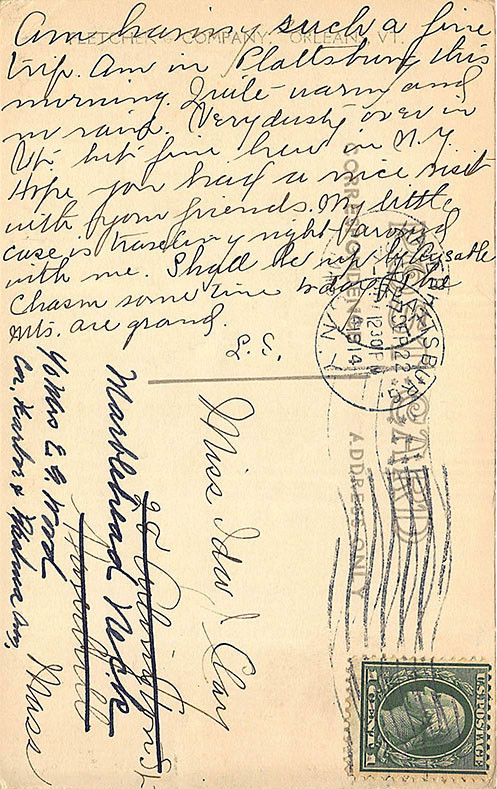 FLETCHER COMPANY, ORLEANS, VT.
Am having such a fine
trip. Am in Plattsburg this
morning. Quite warm and
no rain. Very dusty over in
Vt. but fine here in N.Y.
Hope you had a nice visit
with your friends. My little
case is traveling right around
with me. Shall be up by Ausable
Chasm some time today. The
Mts. are grand.
L. G.
CORRESPONDENCE
POST CARD
ADDRESS ONLY
PLATTSBURG
SEP 22
1230 PM
1914
N.Y.
Miss Ida Clay
Marblehead Neck
Mass
c/o Mrs E. G. Wood
Cor. Harbor &
Ave,
US POSTAGE
1 CENT 1